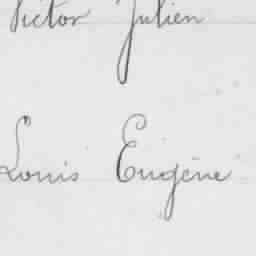 Victor Julien
Louis Eugène